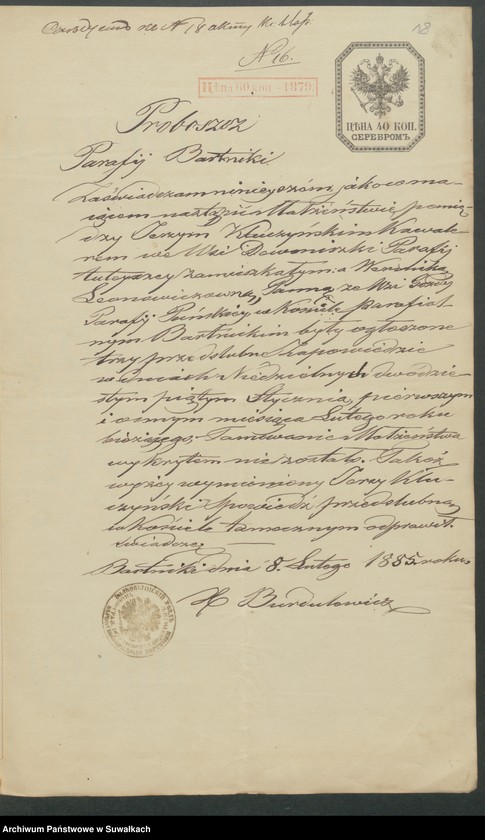 18
do № 18
№ 16.
ЦѢНА 60 КОП - 1879
ЦѢНА 40 КОП.
СЕРЕБРОМЪ
Proboszcz
Parafij Bartniki
Zaświadczam niniejszém jako o ma-
jącem nastąpić Małżeństwie pomię-
dzy Jerzym Kluczyńskim Kawale-
rem we Wsi Parafij
tutejszej zamieszkałym: a Weroniką
Leonowiczówną, Panną ze Wsi
Parafij Puńskiej w Kościele parafial
nym Bartnikim były ogłoszone
trzy przedślubne Zapowiedzie
w dniach Niedzielnych dwódzie-
stym piątym Stycznia, pierwszym
i osmym miesiąca Lutego roku
bieżącego. Tamowanie Małżeństwa
wykrytem nie zostało. Takoż
wyżéj wymieniony Jerzy Klu-
czyński Spowiedź przedślubną
w Kościele tamecznym odprawił.
świadczę.
Bartniki dnia 8. Lutego 1885. roku
X Burdulowicz
Archiwum Państwowe w Suwałkach